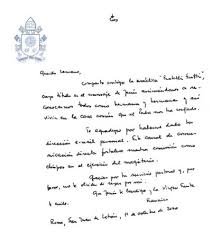 Querido hermano,
Comparto contigo la encíclica "Fratelli Tutti",
cuyo título es el mensaje de Jesús a re-
conocernos todos como hermanos y hermanas y así
vivir en la casa común que el Padre nos ha confiado.
Te agradezco por haberme dado tu
dirección e-mail personal. Este canal de comu-
nicación directa fortalece nuestra comunión como
obispos en el ejercicio del magisterio.
Gracias por tu servicio pastoral y, por
favor, no te olvides de rezar por mí.
Que Jesús te bendiga y la Virgen Santa
te cuide.
Francisco
Roma, San Juan de Letrán, de octubre de 2020